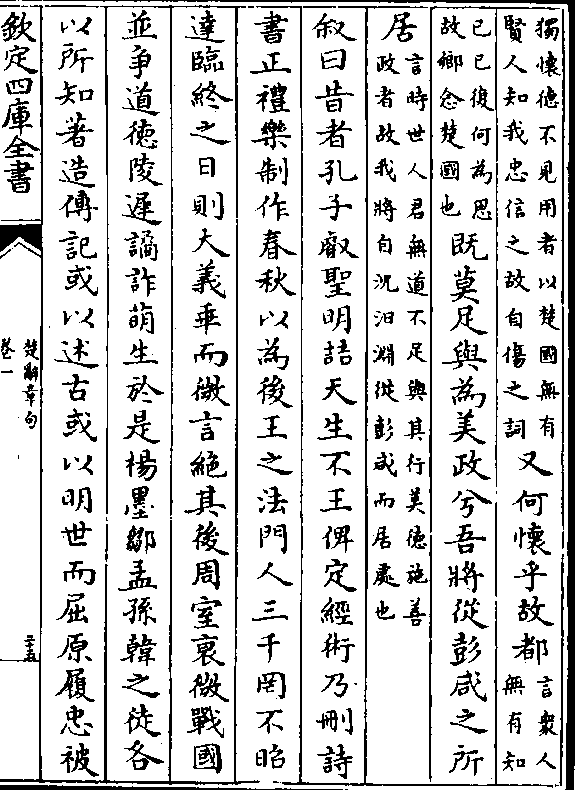 獨懷德不見用者以楚國無有
賢人知我忠信之故自傷之詞
又何懷乎故都
言衆人
無有知
已已復何為思
故鄉念楚國也
既莫足與為美政兮吾將從彭咸之所
居
言時世人君無道不足與其行美德施善
政者故我將自沉汨淵從彭咸而居處也
叙曰昔者孔子叡聖明喆天生不王俾定經術乃刪詩
書正禮樂制作春秋以為後王之法門人三千罔不昭
達臨終之日則大義乖而微言絕其後周室衰微戰國
並爭道德陵遲譎詐萌生於是楊墨鄒孟孫韓之徒各
以所知著造傳記或以述古或以明世而屈原履忠被
欽定四庫全書
楚辭章句
卷一